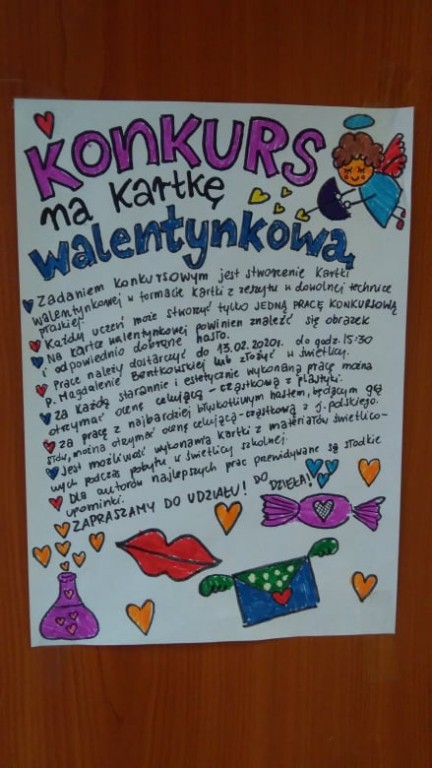 KONKURS
na kartkę
walentynkową
Zadaniem konkursowym jest stworzenie kartki
walentynkowej w formacie kartki z zeszytu w dowolnej technice
płaskiej.
Każdy uczeń może stworzyć tylko JEDNĄ PRACĘ KONKURSOWĄ
Na kartce walentynkowej powinien znaleźć się obrazek
i odpowiednio dobrane hasło.
Pracę należy dostarczyć do 13.02.2020r. do godz. 15:30
p. Magdalenie Bentkowskiej lub złożyć w świetlicy.
Za każdą starannie i estetycznie wykonaną pracę można
otrzymać ocenę celującą - cząstkową z plastyki.
Za pracę z najbardziej błyskotliwym hasłem, będącym grą
słów, można otrzymać ocenę celującą - cząstkową z j. polskiego.
Jest możliwość wykonania kartki z materiałów świetlico-
wych podczas pobytu w świetlicy szkolnej.
Dla autorów najlepszych prac przewidywane są słodkie
upominki.
ZAPRASZAMY DO UDZIAŁU! DO DZIEŁA!